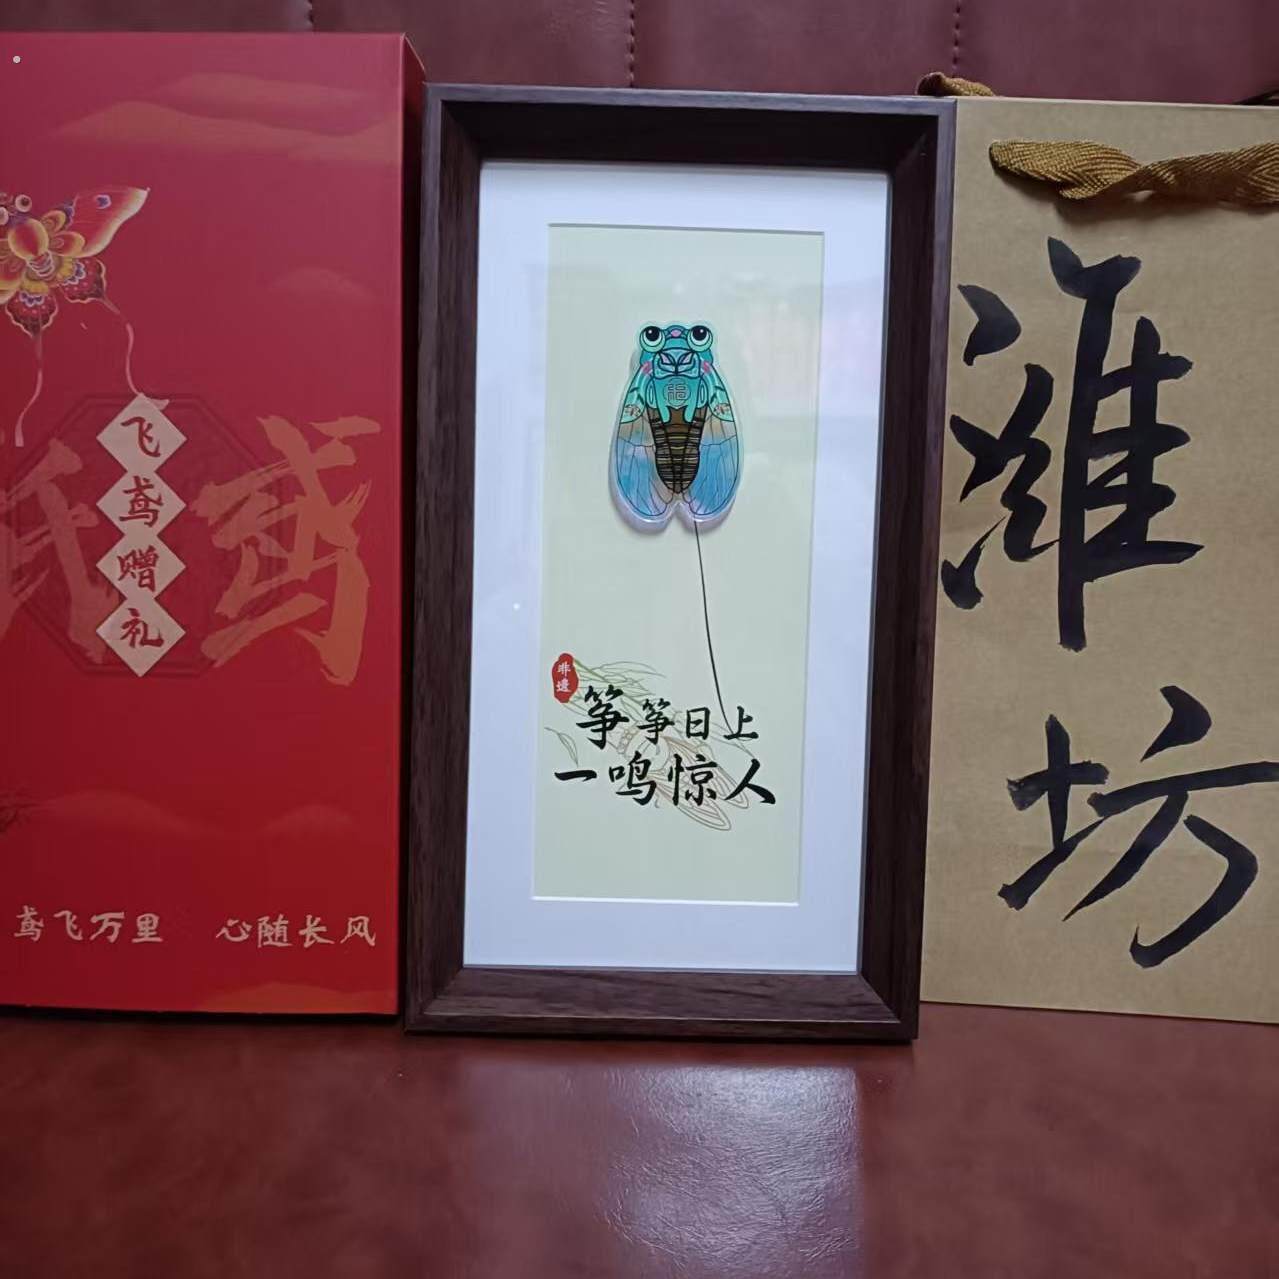 飞鸢赠礼
鸢
鸢飞万里 心随长风
非遗
筝筝日上
一鸣惊人
潍坊